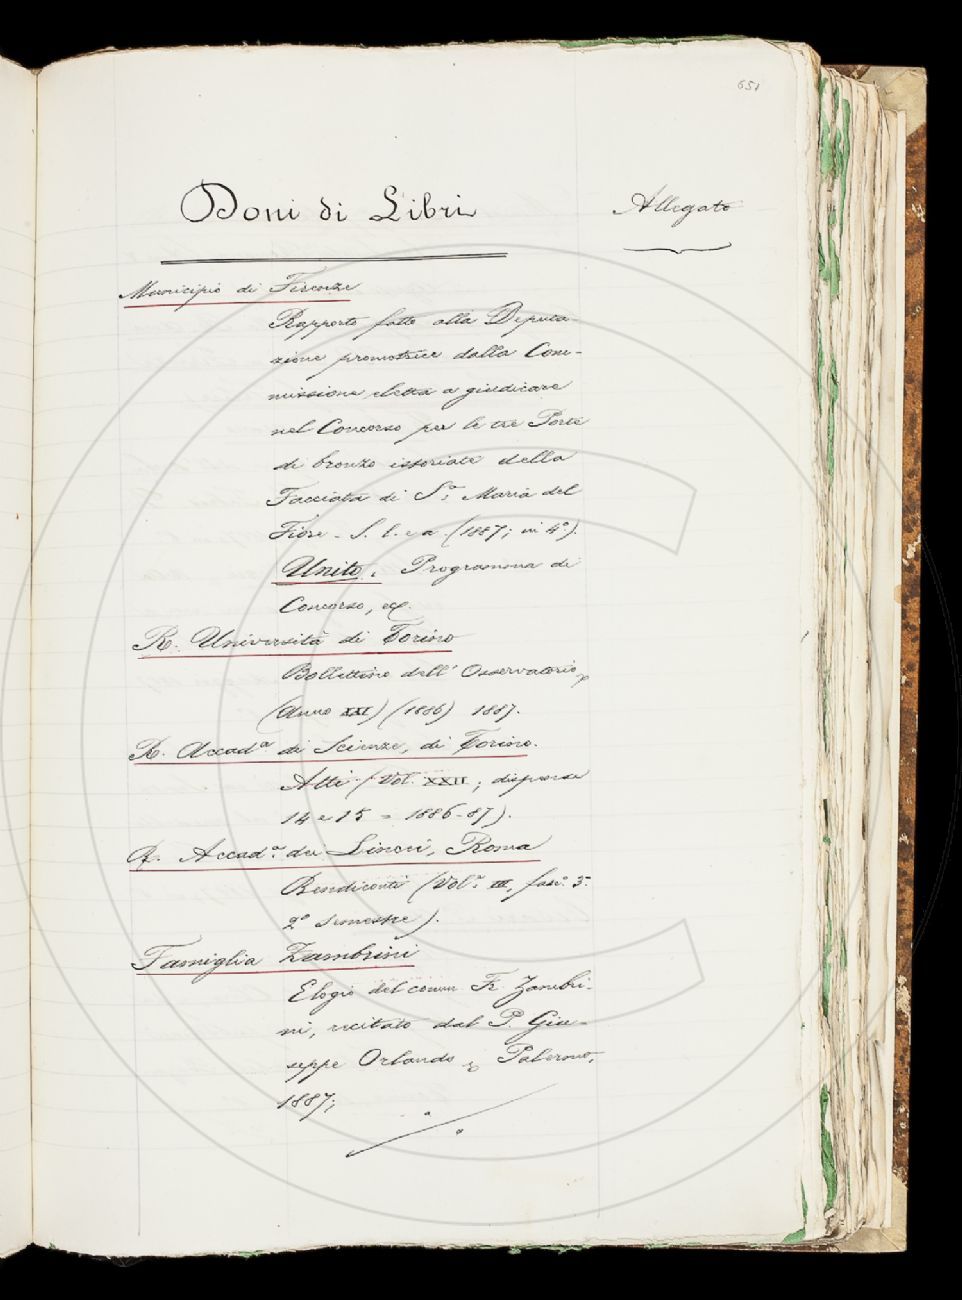 651
Doni di Libri
Allegato
Municipio di Firenze
Rapporto fatto alla Deputa-
zione promotrice dalla Com-
missione eletta a giudicare
nel Concorso per le tre Porte
di bronzo istoriate della
Facciata di S.ª Maria del
Fiore - S. l. e a (1887; in 4.º).
Unito. Programma di
Concorso, ec.
R. Università di Torino
Bollettino dell' Osservatorio,
(Anno XXI) (1886) 1887.
R. Accad.ª di Scienze, di Torino.
Atti (Vol. XXII; dispense
14 e 15 = 1886-87).
R. Accad.ª dei Lincei, Roma
Rendiconti (Vol.º III, fasc.º 3.º
2º semestre).
Famiglia Zambrini
Elogio del comm Fr. Zambri-
ni, recitato dal P. Giu-
seppe Orlando; Palermo,
1887;